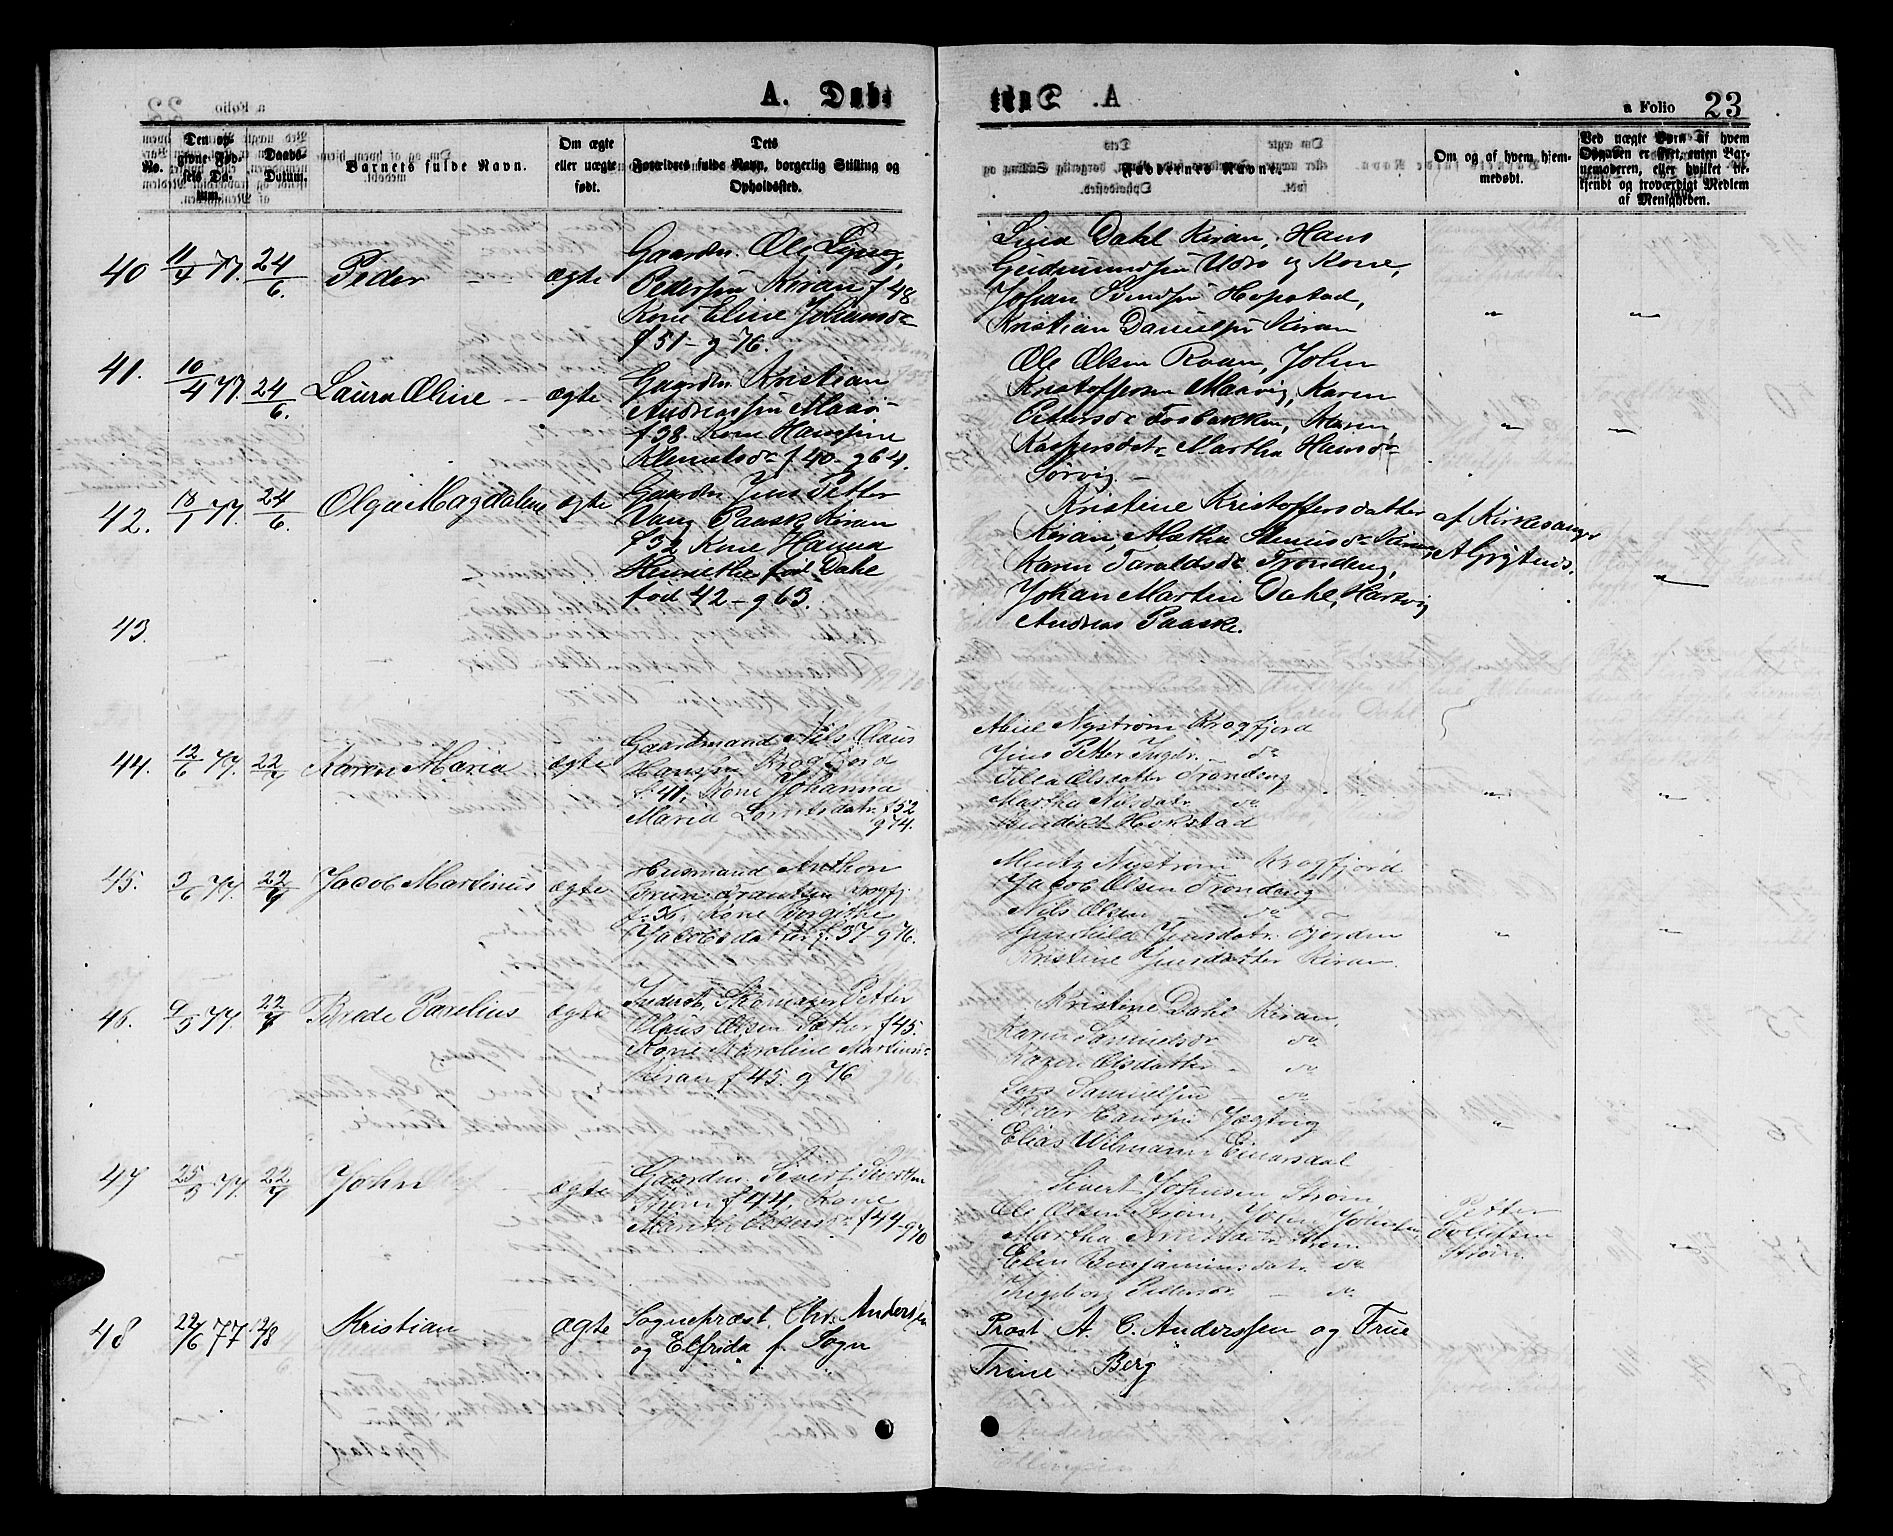 A. Døbt
a Folio 23
No.
Den opgivne Fødsels Datum.
Daabs-Datum.
Barnets fulde Navn.
Om ægte eller uægte født.
Dets Forældres fulde Navn, borgerlig Stilling og Opholdssted.
Faddernes Navne.
Om og af hvem hjemmedøbt.
Ved uægte Børn af hvem Opgaven er skeet, enten Barnemoderen, eller hvilket bekjendt og troværdigt Medlem af Menigheden.
40 11/4 77. 24/6. Peder ægte
Gaardm. Ole
Pedersen Kiran f 48
Kone Eline Johansdr
f 51 - g 76.
Lina Dahl Kiran, Hans
Gudmundsen og Kone,
Johan Hopstad,
Kristian Danielsen Kiran
41. 10/4 77. 24/6. Laura Oline ægte
Gaardm. Kristian
Andreassen
f 38. Kone Hansine
Klemetsdr f 40 - g 64.
Ole Olsen Roan, John
Kristoffersen Maavig, Karen
Pettersdr Fosbakken, Karen
Kaspersdatr Martha Hansdr
Sørvig
42. 18/1 77. 24/6. Olga Magdalene ægte
Gaardm. Jens Petter
Vang Paaske Kiran
f 32 Kone Hanna
Henrethe fød Dahl
fød 42 - g 63.
Kristine Kristoffersdatter
Kiran,
Karen Taraldsdr Trondeng,
Johan Martin Dahl, Hartvig
Andreas Paaske.
af Kirkesanger
A Grytnes.
43.
44. 12/6 77. 22/7 Karen Maria ægte
Gaardmand Nils Olaus
Hansen Kragfjord
f. 41, Kone Johanna
Maria f 52
g 74.
Aline Nystrøm Kragfjord
Jens Petter do
Olsdatter Trondeng
Martha Nilsdatr. do
Hopstad
45. 3/6 77. 22/7 Jacob Martinus ægte
Husmand Anthon
Kragfj
f. 36, Kone
Jacobsdatter f. 37 - g 76.
Nystrøm Kragfjord
Jacob Olsen Trondeng
Nils Olsen do
Gunhild Jensdatr.
Kristine Jensdatter Kiran.
46. 9/5 77. 22/7 Brede Parelius ægte
Inderst, Skomager Petter
Olaus Olsen Sæther f 45.
Kone Karoline Martinsdr
Kiran f 45. g 76
Kristine Dahl Kiran,
Karen Samuelsdr do
Karen Olsdatter do
Lars Samuelsen do
Peder Hansen Jægtvig
Elias Wilmann Einarsdal
47 25/5 77. 22/7 John ægte
Gaardm. Sivert
Strøm f 44, Kone
Pedersdr f 44 - g 70
Sivert Johnsen Strøm,
Ole Olsen Strøm, John Johnsen,
Martha Strøm
Elen Benjaminsdatr. do
Ingeborg Pedersdr do
Petter
Tollefsen
Strøm.
48 22/6 77 12/8 Kristian ægte
Sognepræst Chr. Anderssen
og Elfrida f. Sogn
Prost A. C. Anderssen og Frue
Trine Berg